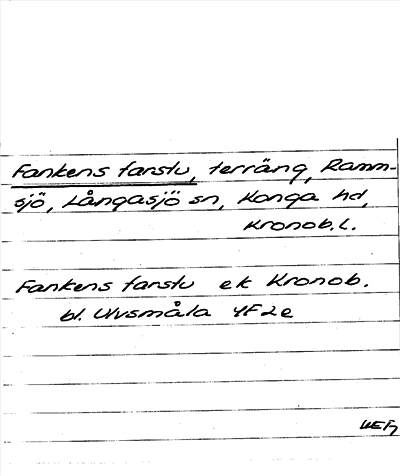 Fankens farstu, terräng, Ramm-
sjö, Långasjö sn, Konga hd,
Kronob. l.
Fankens farstu ek Kronob.
bl. Ulvsmåla 4F2e